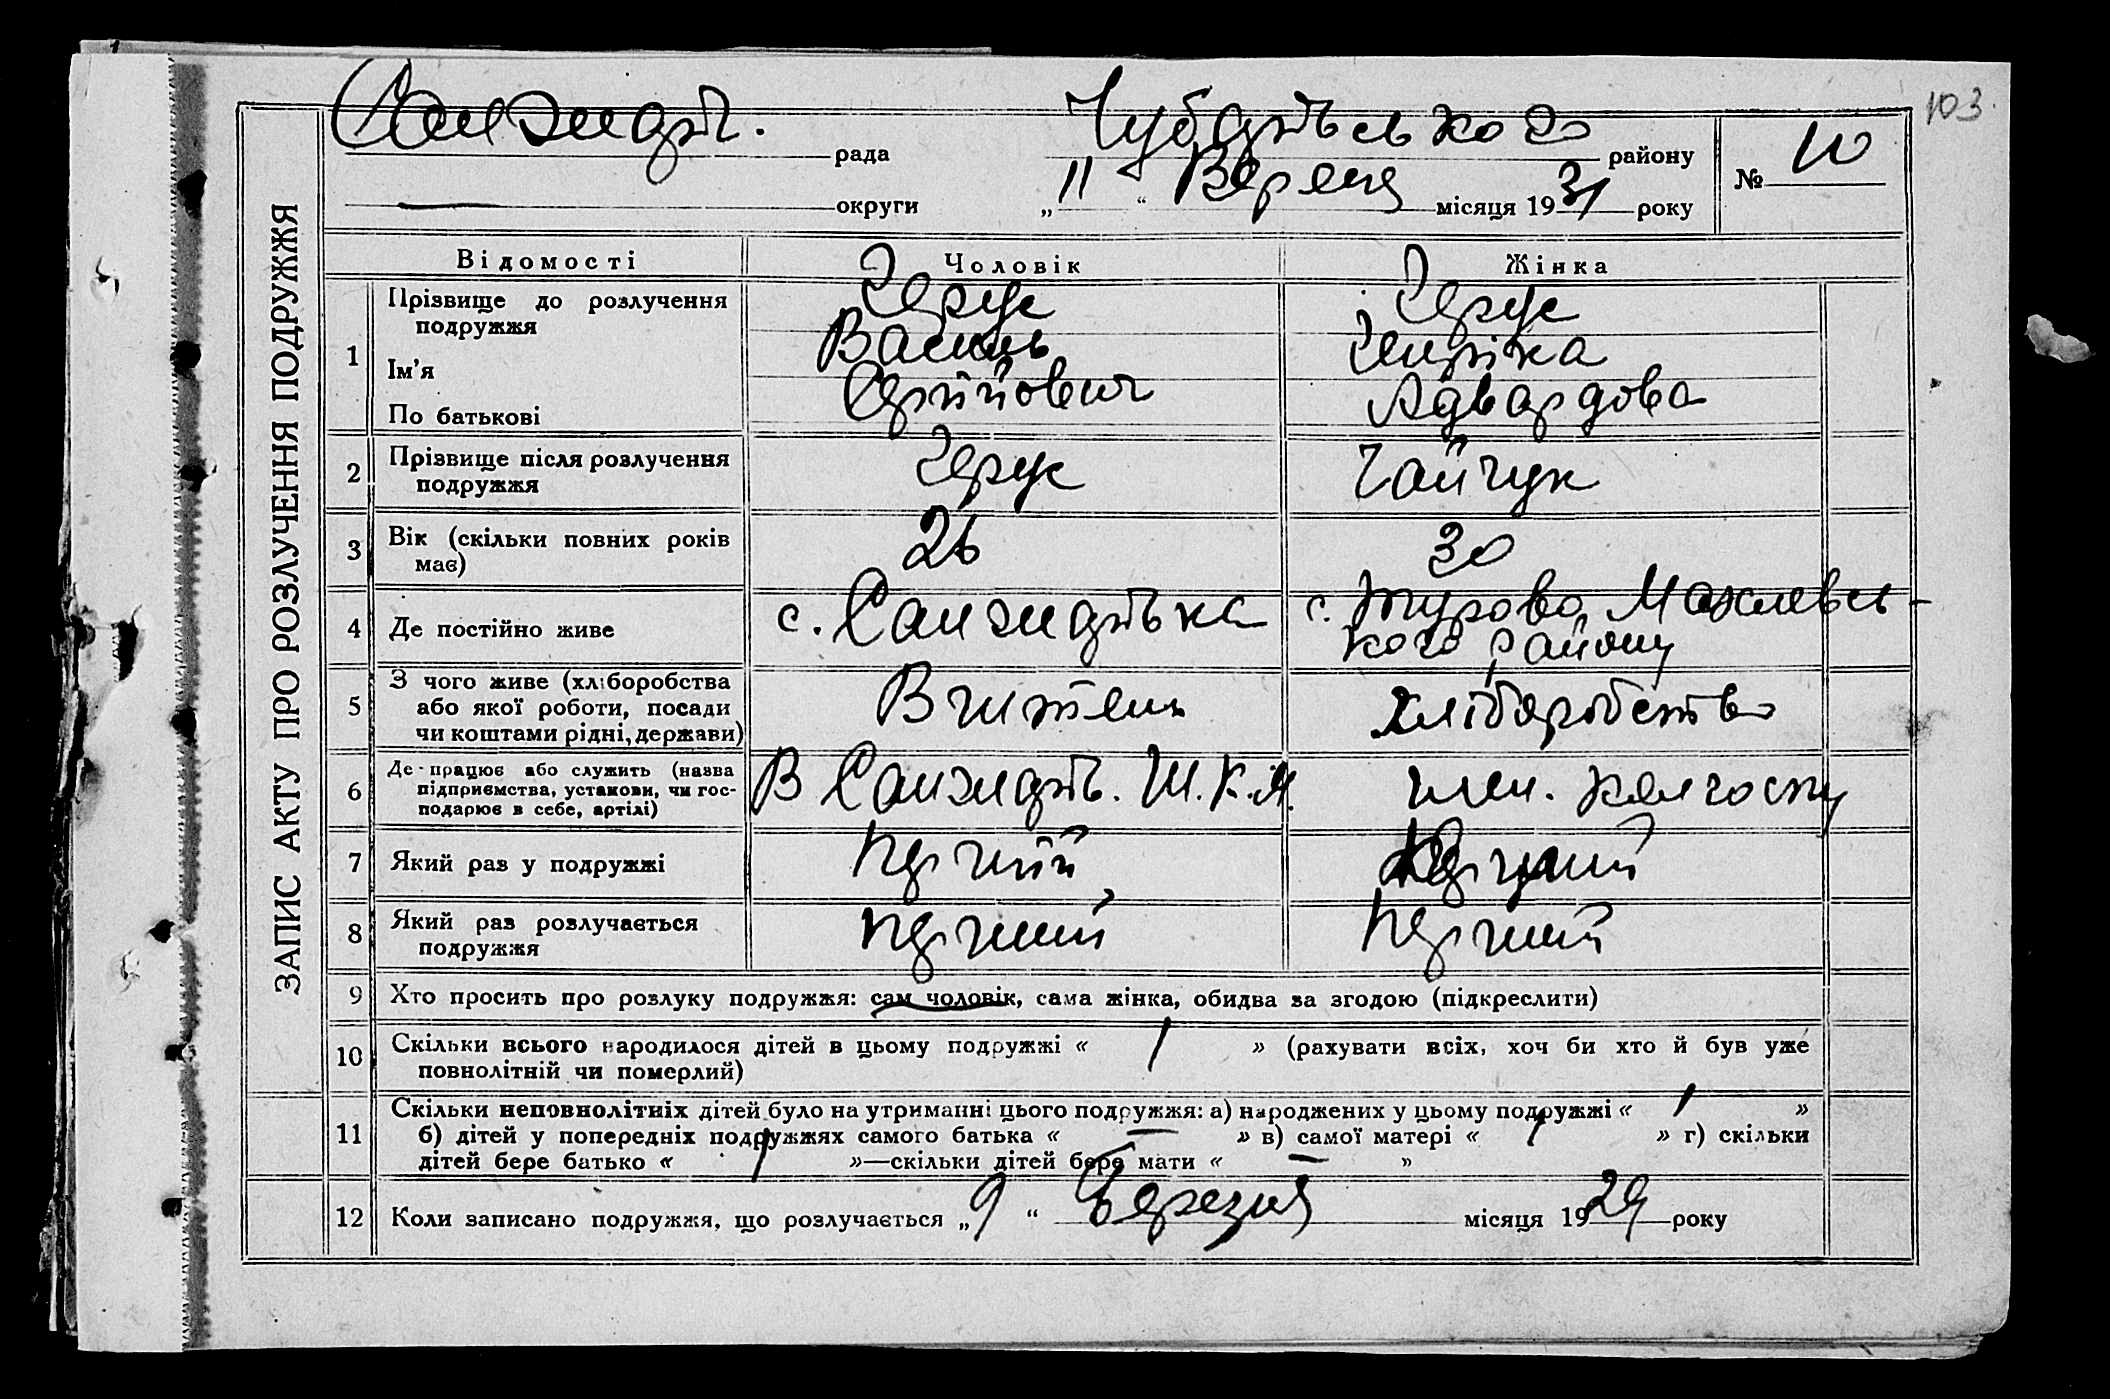 103.
ЗАПИС АКТУ ПРО РОЗЛУЧЕННЯ ПОДРУЖЖЯ
рада
Чубарівського району
№ 10
округи
„ 11 “ Вересня місяця 1931 року
Відомості Чоловік Жінка
1 Прізвище до розлучення подружжя
Ім’я Василь
По батькові Сергійович Адвардова
2 Прізвище після розлучення подружжя Гайчук
3 Вік (скільки повних років має) 26 30
4 Де постійно живе с. с. Турово,
кого району
5 З чого живе (хліборобства або якої роботи, посади чи коштами рідні, держави) Вчитель хліборобство
6 Де працює або служить (назва підприємства, установи, чи господарює в себе, артілі) В Ш.К.М. член. колгоспу
7 Який раз у подружжі
8 Який раз розлучається подружжя
9 Хто просить про розлуку подружжя: сам чоловік, сама жінка, обидва за згодою (підкреслити)
10 Скільки всього народилося дітей в цьому подружжі « 1 » (рахувати всіх, хоч би хто й був уже
повнолітній чи померлий)
11 Скільки неповнолітніх дітей було на утриманні цього подружжя: а) народжених у цьому подружжі « 1 »
б) дітей у попередніх подружжях самого батька « — » в) самої матері « 1 » г) скільки
дітей бере батько « 1 »—скільки дітей бере мати « — »
12 Коли записано подружжя, що розлучається „ 9 “ Березня місяця 1929 року